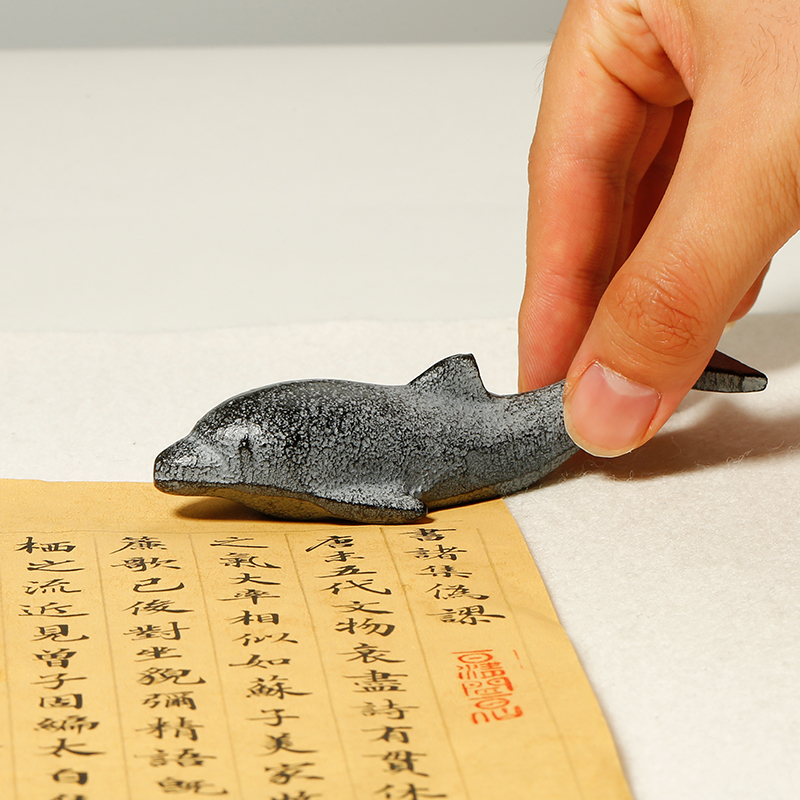 書諸集偽謬
唐末五代文物衰盡詩有貫休
之氣大率相似如蘇子美家
簾歌已後對坐貌彌精語既
栖之流近見曽子固編太白